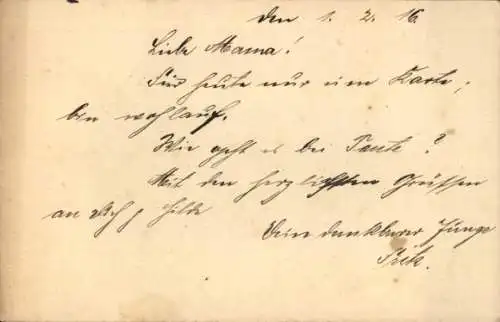 den 1. 2. 16.
Liebe Mama!
Für heute nur eine Karte;
bin wohlauf.
Wie geht es bei Tante?
Mit den herzlichsten Grüssen
an Dich, Hilde
Dein dankbarer Junge
Fritz.